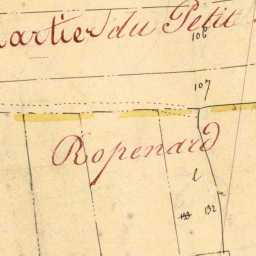 quartier du Petit
106
107
Ropenard
133 132